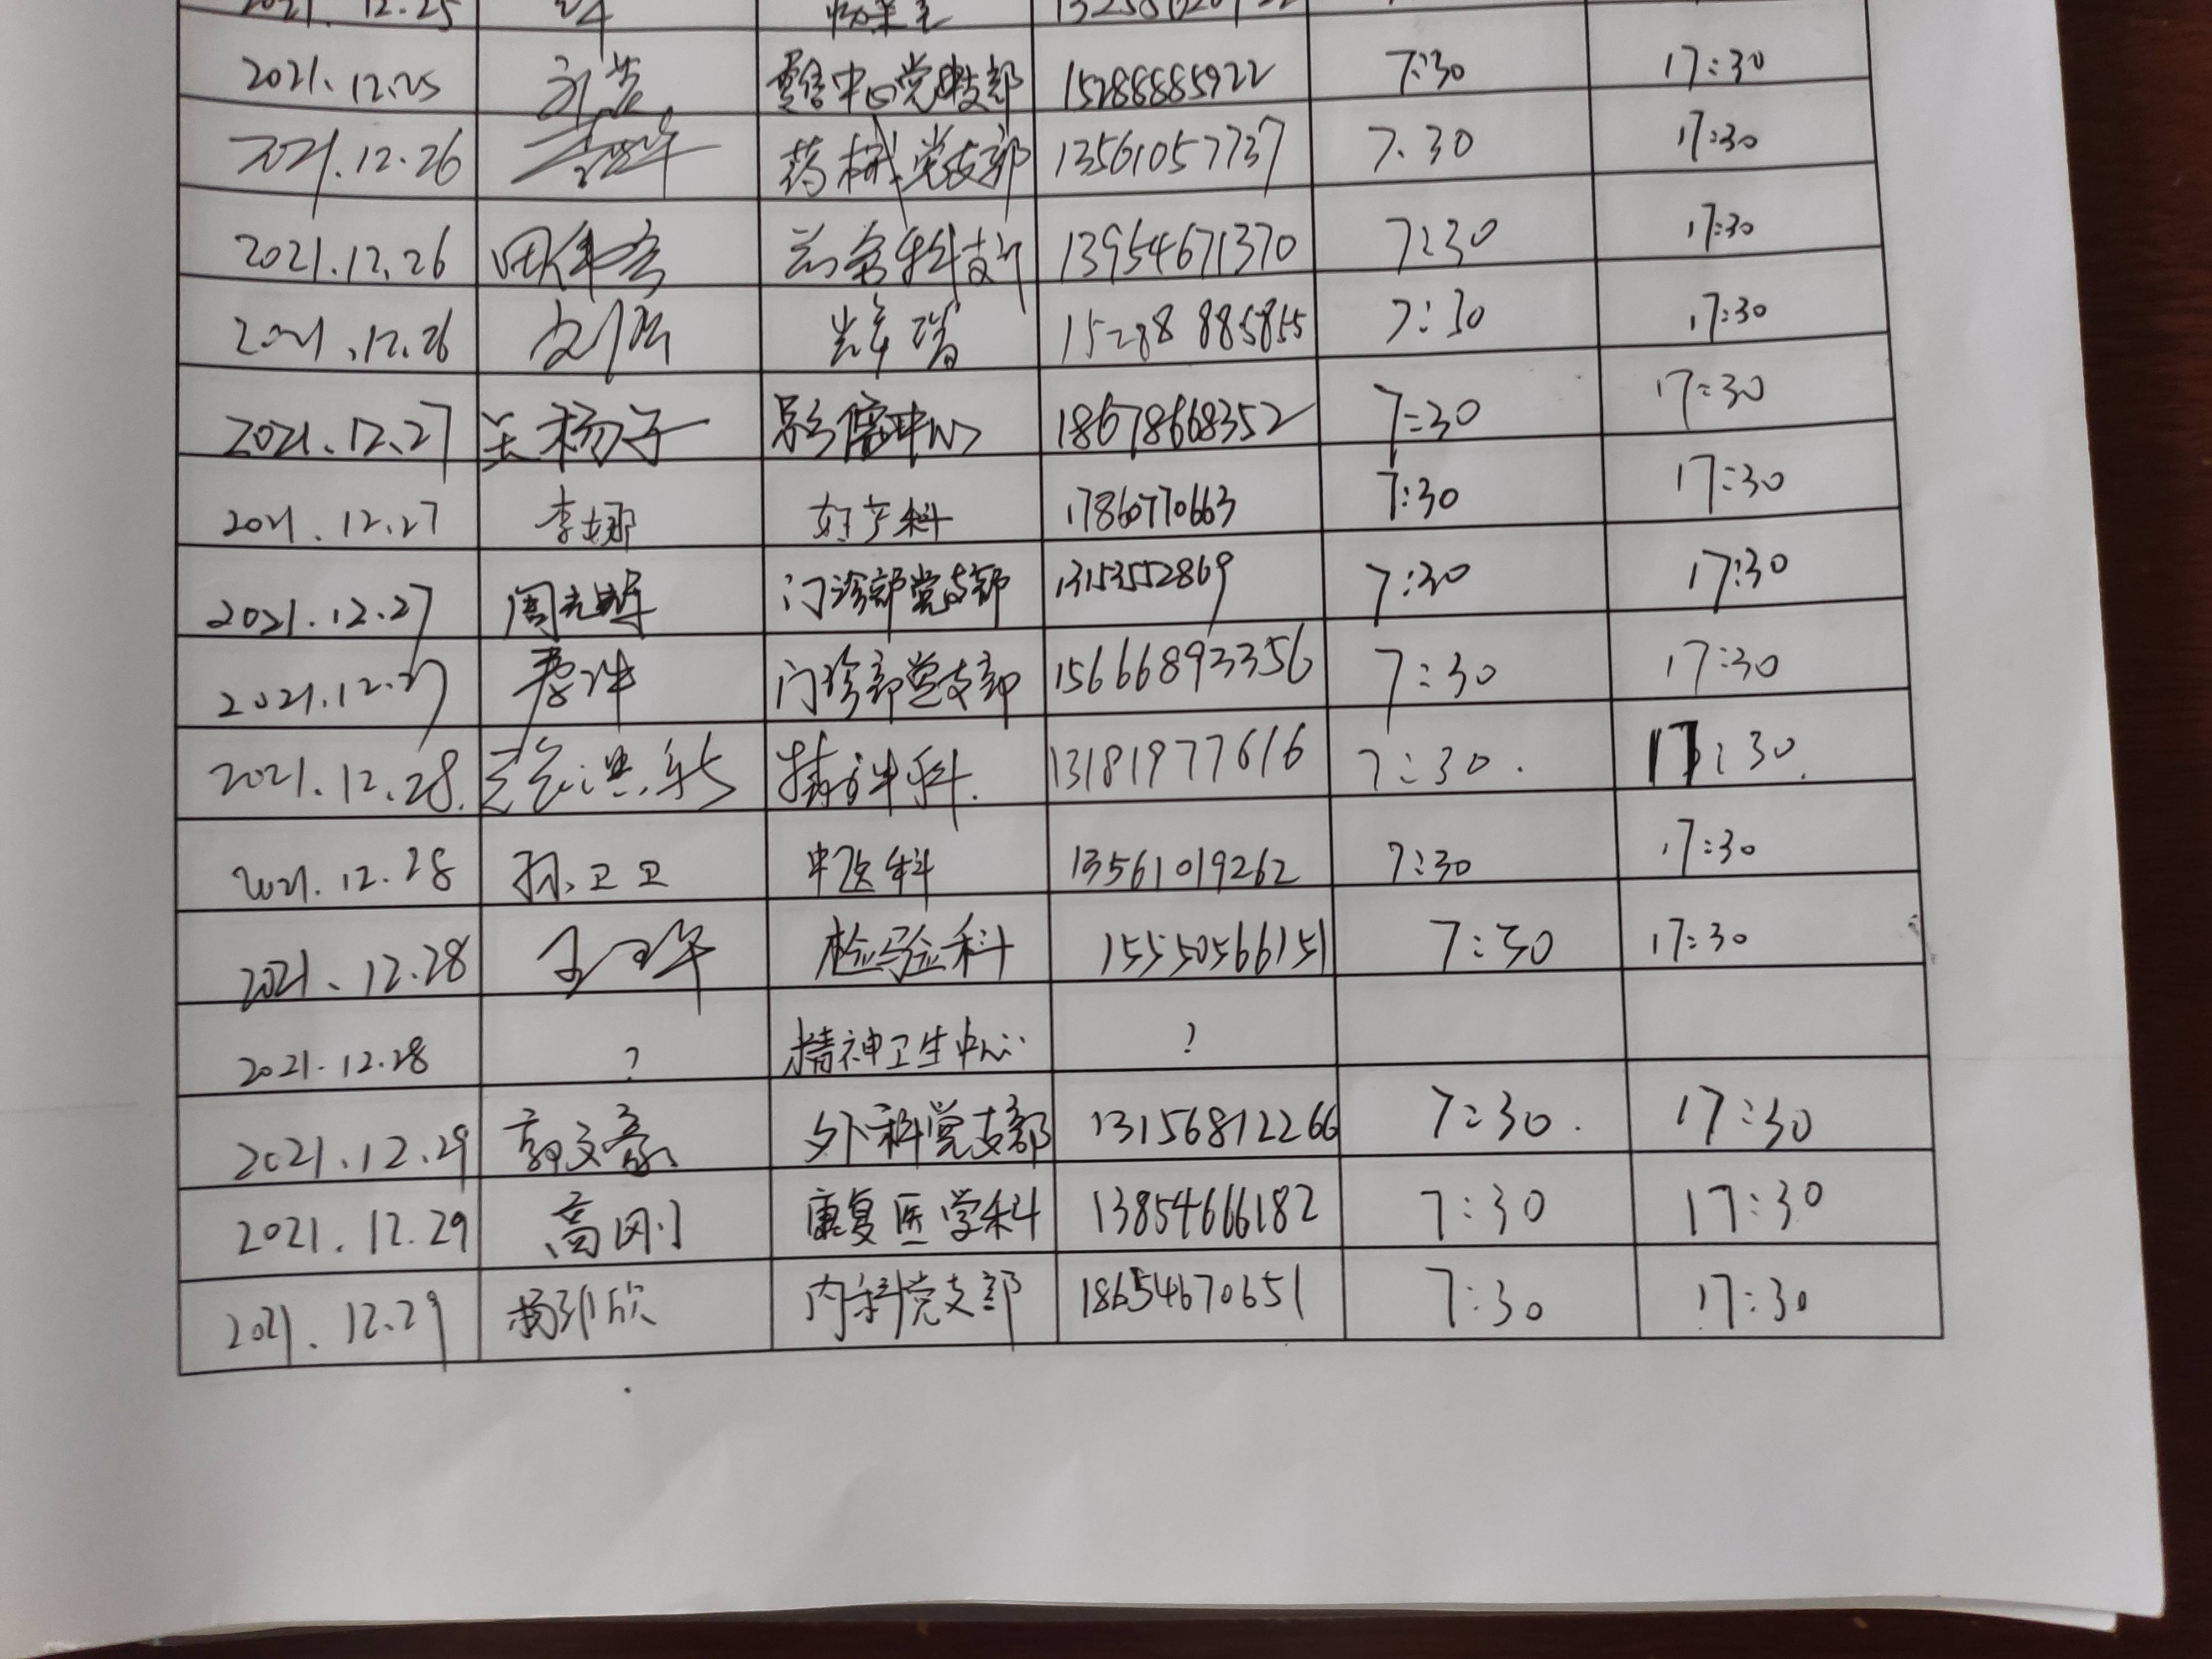 2021.12.25
2021.12.25 15288885922 7:30 17:30
2021.12.26 药械党支部 13561057737 7:30 17:30
2021.12.26 13954671370 7:30 17:30
2021.12.26 15288885855 7:30 17:30
2021.12.27 关杨子 影像中心 18678668352 7:30 17:30
2021.12.27 李娜 妇产科 17860770663 7:30 17:30
2021.12.27 门诊部党支部 13153552869 7:30 17:30
2021.12.27 门诊部党支部 15666893356 7:30 17:30
2021.12.28. 精神科. 13181977616 7:30. 17:30.
2021.12.28 孙卫卫 中医科 13561019262 7:30 17:30
2021.12.28 检验科 15550566151 7:30 17:30
2021.12.28 ? 精神卫生中心 ?
2021.12.29 郭文豪 外科党支部 13156812266 7:30. 17:30
2021.12.29 高刚 康复医学科 13854666182 7:30 17:30
2021.12.29 内科党支部 18654670651 7:30 17:30